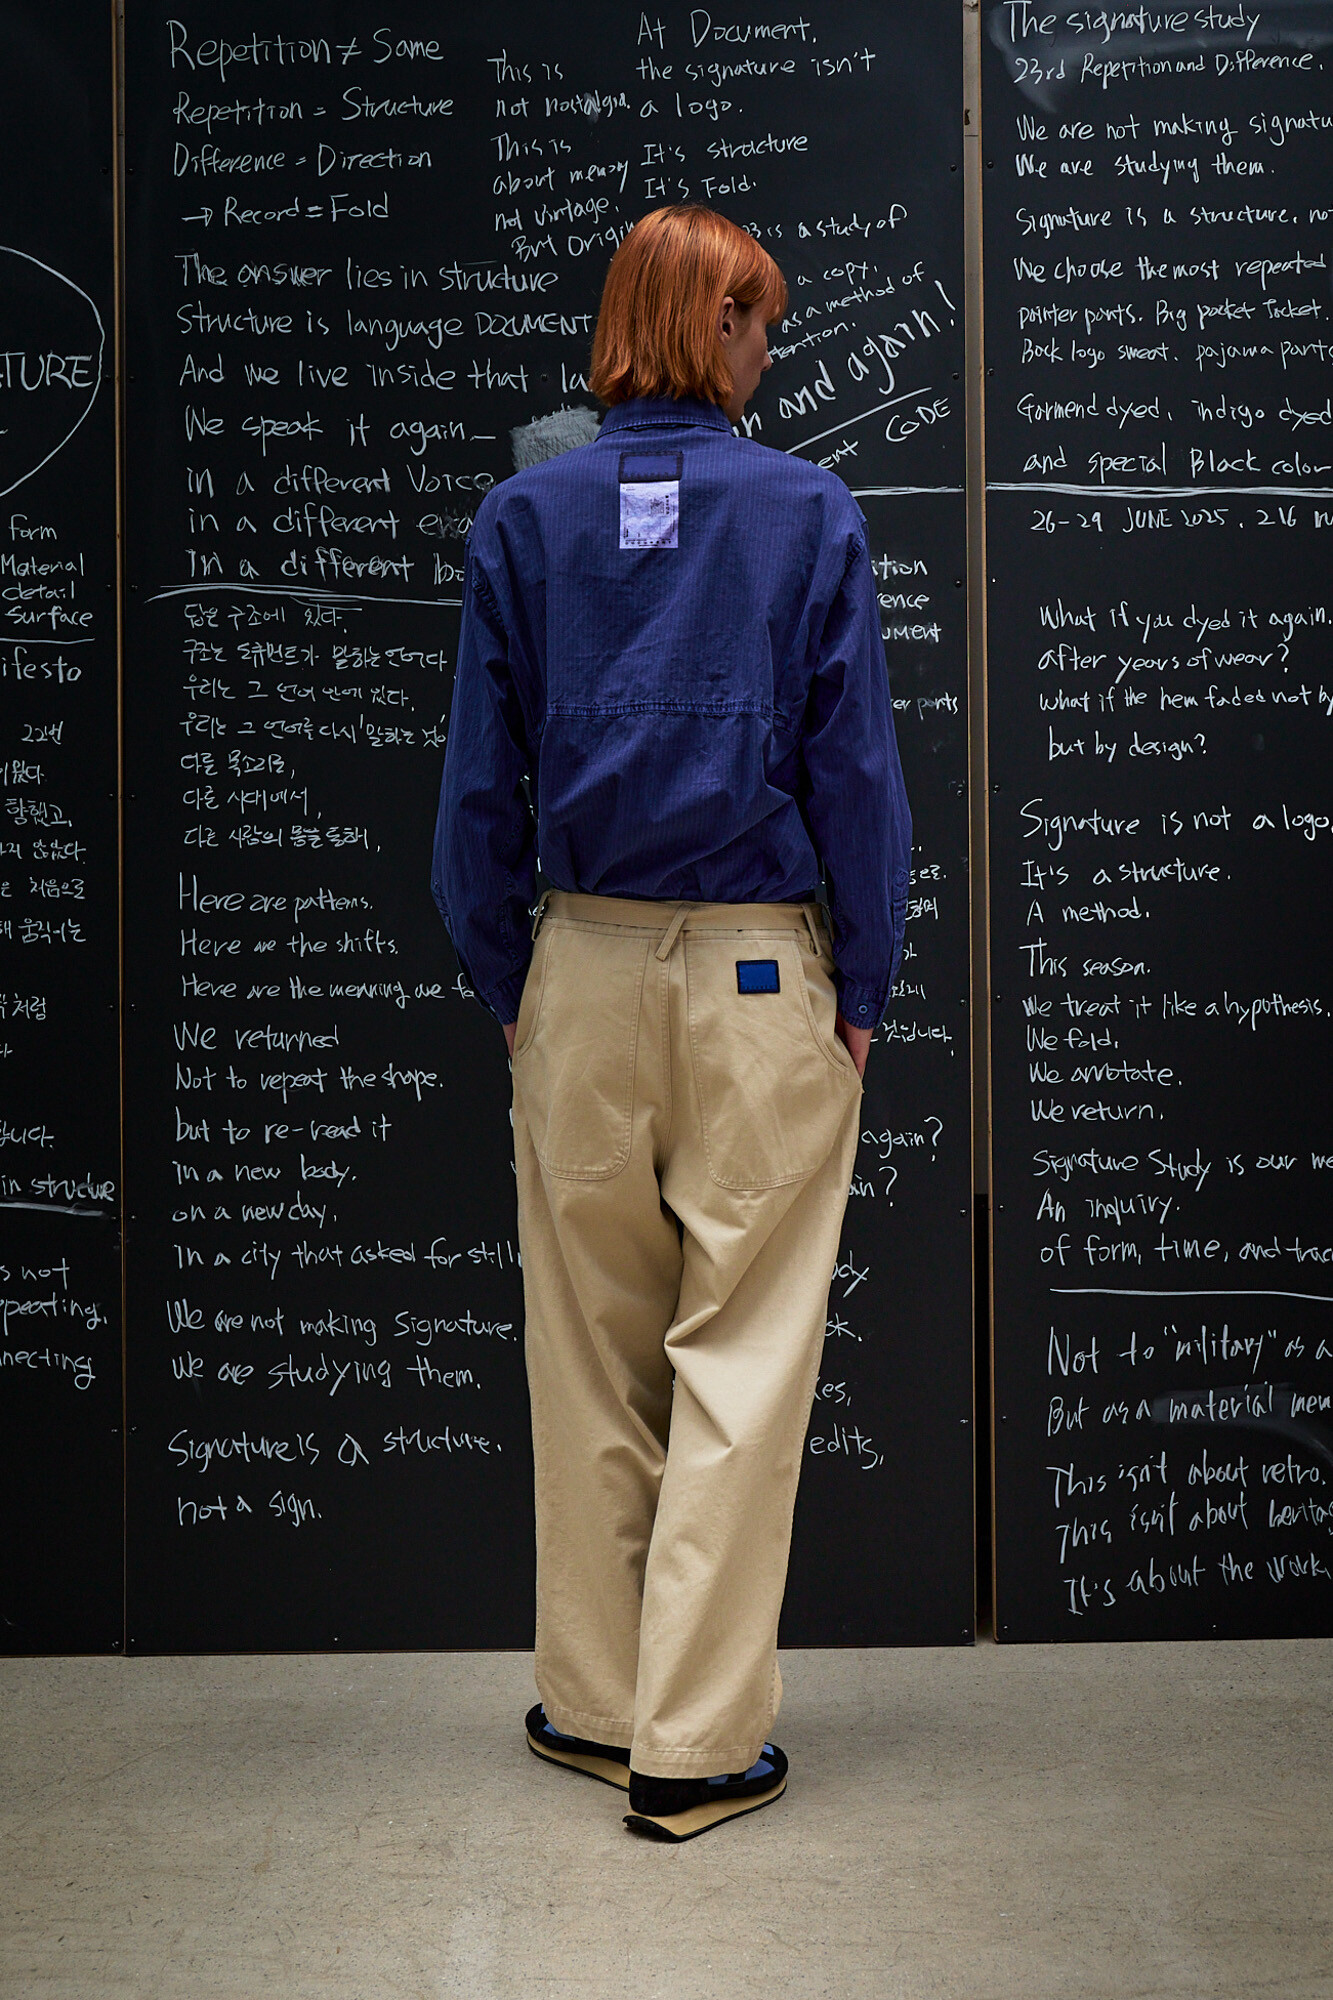 TURE
form
Material
detail
Surface
ifesto
22번
함했고,
처음으로
움직이는
처럼
in structure
s not
epeating.
nnecting
Repetition ≠ Same
Repetition = Structure
Difference = Direction
→ Record = Fold
The answer lies in structure
Structure is language DOCUMENT
And we live inside that la
We speak it again—
in a different Voice
in a different era
In a different bo
답은 구조에 있다.
구조는 도큐먼트가 말하는 언어다
우리는 그 언어 안에 있다.
우리는 그 언어를 다시 말하는 것이
다른 목소리로,
다른 시대에서,
다른 사람의 몸을 통해,
Here are patterns.
Here are the shifts.
Here are the meaning we fo
We returned
Not to repeat the shape.
but to re-read it
in a new body.
on a new day.
in a city that asked for still
We are not making Signature.
We are studying them.
Signature is a structure.
not a sign.
This is
not nostalgia.
This is
about memory
not vintage.
But Origin
At Document,
the signature isn't
a logo.
It's structure
It's Fold.
23 is a study of
a copy.
as a method of
tention.
in and again!
ent CODE
ition
rence
ument
er pants
것입니다.
again?
ain?
ody
sk.
es,
edits,
The signature study
23rd Repetition and Difference.
We are not making signatu
We are studying them.
Signature is a structure, no
We choose the most repeated
painter pants. Big pocket Jacket.
Back logo sweat. pajama pants
Garmend dyed, indigo dyed
and special Black color
26-29 JUNE 2025, 216 r
What if you dyed it again.
after years of wear?
What if the hem faded not by
but by design?
Signature is not a logo,
It's a structure.
A method.
This season.
we treat it like a hypothesis.
We fold.
We annotate.
We return.
Signature Study is our me
An inquiry.
of form, time, and trac
Not to "military" as a
But as a material mem
This isn't about retro.
This isn't about heritag
It's about the work.